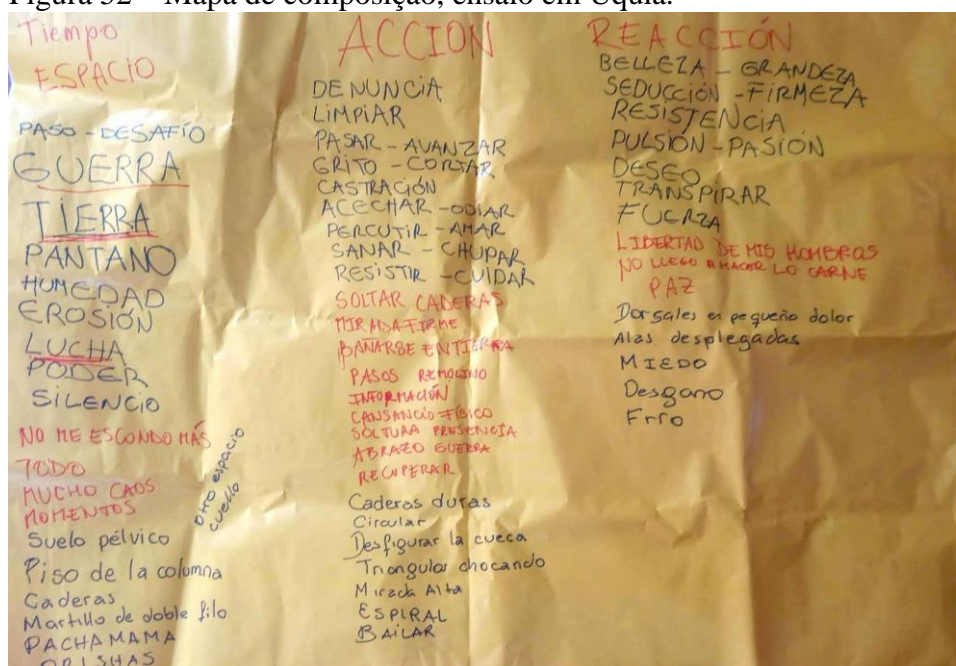 Figura 32 – Mapa de composição, ensaio em Uquia.
Tiempo
ESPACIO
PASO - DESAFÍO
GUERRA
TIERRA
PANTANO
HUMEDAD
EROSIÓN
LUCHA
PODER
SILENCIO
NO ME ESCONDO MÁS
TODO
MUCHO CAOS
MOMENTOS
Otro espacio
cuello
Suelo pélvico
Piso de la columna
Caderas
Martillo de doble filo
PACHAMAMA
ORISHAS
ACCION
DENUNCIA
LIMPIAR
PASAR - AVANZAR
GRITO - CORTAR
CASTRACIÓN
ACECHAR - ODIAR
PERCUTIR - AMAR
SANAR - CHUPAR
RESISTIR - CUIDAR
SOLTAR CADERAS
MIRADA FIRME
BAÑARSE EN TIERRA
PASOS REMOLINO
INFORMACIÓN
CANSANCIO FÍSICO
SOLTURA PRESENCIA
ABRAZO GUERRA
RECUPERAR
Caderas duras
Circular
Desfigurar la cueca
Triangular chocando
Mirada Alta
ESPIRAL
BAILAR
REACCIÓN
BELLEZA - GRANDEZA
SEDUCCIÓN - FIRMEZA
RESISTENCIA
PULSIÓN - PASIÓN
DESEO
TRANSPIRAR
FUERZA
LIBERTAD DE MIS HOMBROS
NO LLEGO A HACER LO CARNE
PAZ
Dorsales en pequeño dolor
Alas desplegadas
MIEDO
Desgano
Frío